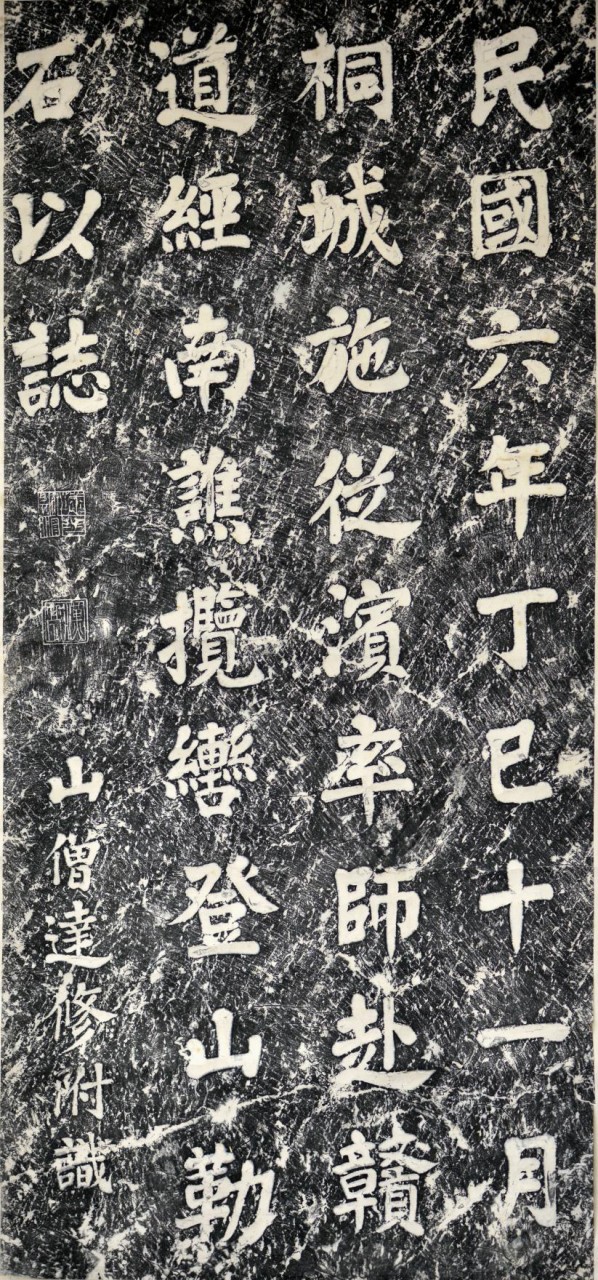 民國六年丁巳十一月
桐城施從濱率師赴贛
道經南譙攬轡登山勒
石以誌
山僧達修附識